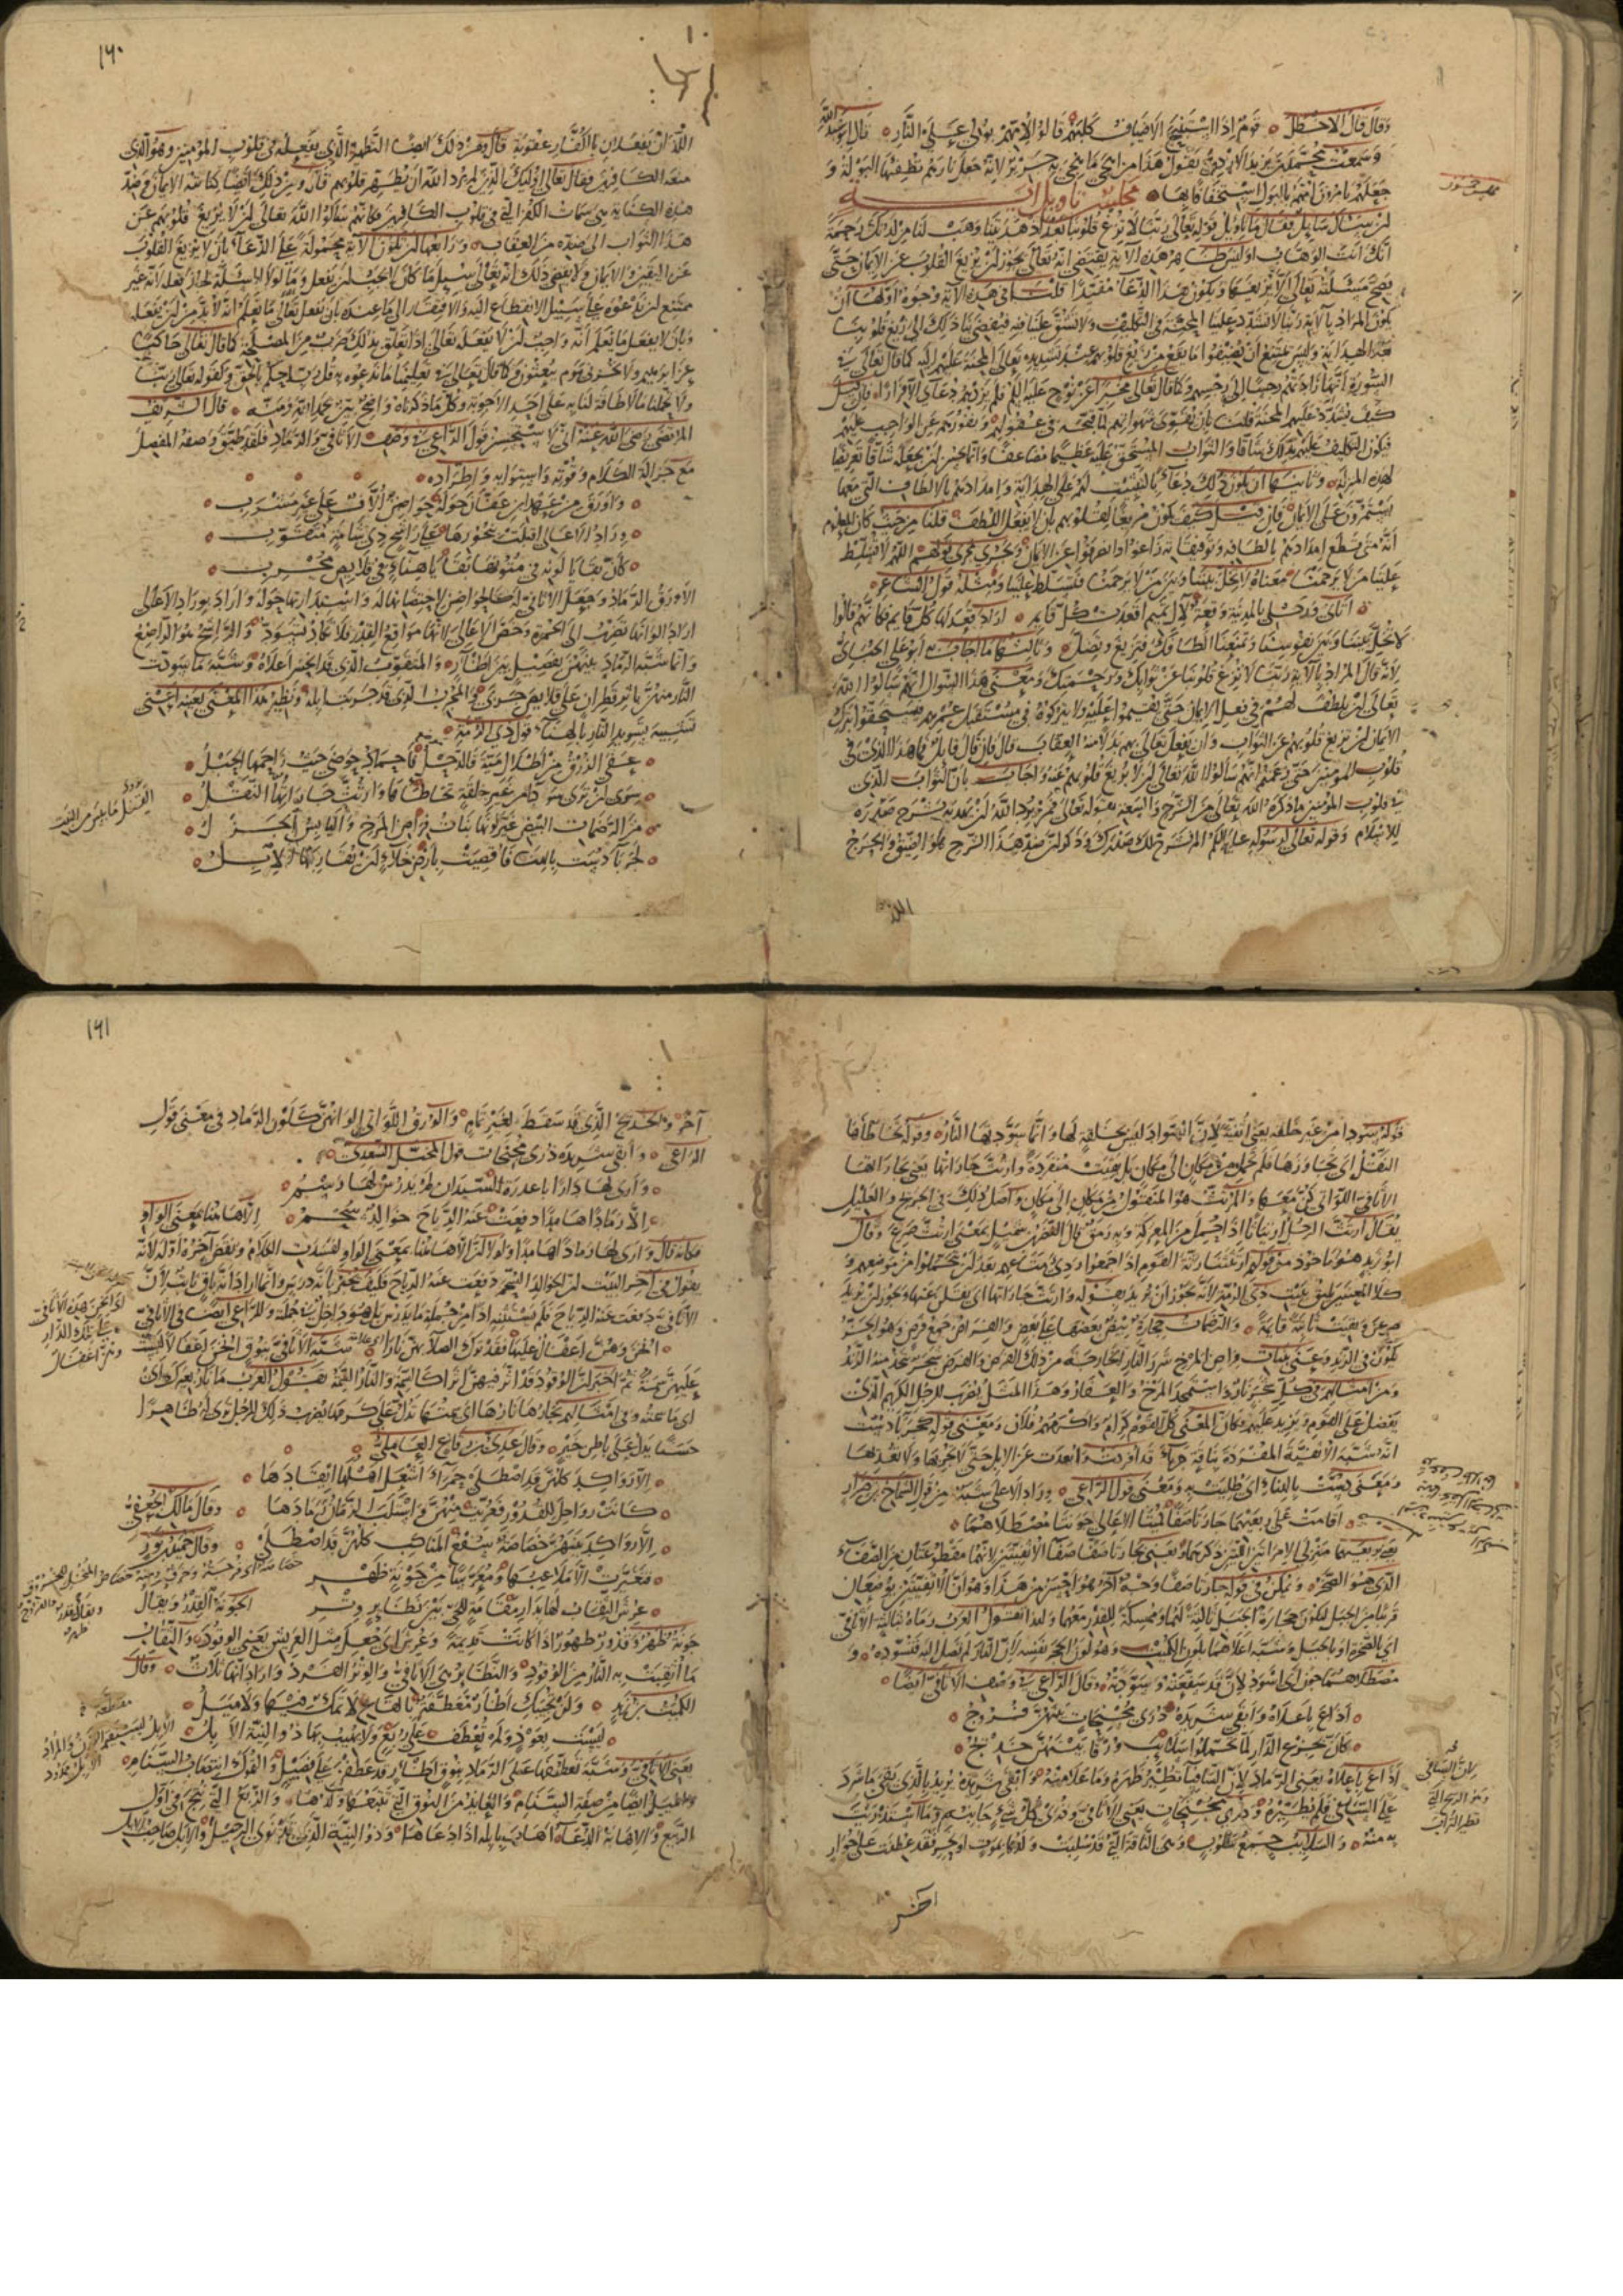 وقال قال الاخطل قوم اذا استنبح الاضياف كلبهم قالوا لامهم بولي على النار قال ابو عبد الله
وسمعت محمد بن يزيد الازدي يقول هذا من اهجى ما هجي به جرير لانه جعل نارهم تطفئها البولة و
جعلهم يامرون امهم بالبول استخفافا بها مجلس تاويل اية
ان سئل سايل فقال ما تاويل قوله تعالى ربنا لا تزغ قلوبنا بعد اذ هديتنا وهب لنا من لدنك رحمة
انك انت الوهاب اوليس ظاهر هذه الاية يقتضي انه تعالى يجوز ان يزيغ القلوب عن الايمان حتى
تصح مسئلته تعالى الا يزيغها ويكون هذا الدعا مفيدا قلنا في هذه الاية وجوه اولها ان
يكون المراد بالاية ربنا لا تشدد علينا المحنة في التكليف ولا تشق علينا فيه فيفضي بنا ذلك الى زيغ قلوبنا
بعد الهداية وليس يمتنع ان يضيفوا ما يقع من زيغ قلوبهم عند تشديده تعالى المحنة عليهم اليه كما قال تعالى في
السورة انها زادتهم رجسا الى رجسهم وكما قال تعالى مخبرا عن نوح عليه السلم فلم يزدهم دعاي الا فرارا فان قيل
كيف يشدد عليهم المحنة قلنا بان يقوي شهواتهم لما قبحه في عقولهم ونفورهم عن الواجب عليهم
فيكون التكليف عليهم بذلك شاقا والثواب المستحق عليه عظيما مضاعفا وانما يحسن ان يجعله شاقا تعريضا
لهذه المنزلة وثانيها ان يكون ذلك دعاء بالتثبيت لهم على الهداية وامدادهم بالالطاف التي معها
يستمرون على الايمان فان قيل كيف يكون مزيغا لقلوبهم بان لا يفعل اللطف قلنا من حيث كان المعلوم
انه متى قطع امدادهم بالطافه وتوفيقاته زاغوا وانصرفوا عن الايمان ويجري مجرى قولهم اللهم لا تسلط
علينا من لا يرحمنا معناه لا تخل بيننا وبين من لا يرحمنا فيتسلط علينا ومثله قول الشاعر
اتاني ورحلي بالمدينة وقعة لال تميم اقعدت كل قايم اراد قعد لها كل قايم فكانهم قالوا
لا تخل بيننا وبين نفوسنا وتمنعنا الطافك فنزيغ ونضل وثالثها ما اجاب به ابو علي الجبائي
لانه قال المراد بالاية ربنا لا تزغ قلوبنا عن ثوابك ورحمتك ومعنى هذا السؤال انهم سالوا الله
تعالى ان يلطف لهم في فعل الايمان حتى يقيموا عليه ولا يتركوه في مستقبل عمرهم فيستحقوا بترك
الايمان ان تزيغ قلوبهم عن الثواب وان يفعل تعالى بهم بدلا منه العقاب قال فان قال قايل فما هذا الذي في
قلوب المومنين حتى زعمتم انهم سالوا الله تعالى ان لا يزيغ قلوبهم عنه واجاب بان الثواب الذي
في قلوب المومنين ما ذكره الله تعالى من الشرح والسعة بقوله تعالى فمن يرد الله ان يهديه يشرح صدره
للاسلام وقوله تعالى لرسوله عليه السلم الم نشرح لك صدرك وذكر ان ضد هذا الشرح هو الضيق والحرج
١٦٠
اللذان يفعلان بالكفار عقوبة قال ومن ذلك ايضا التطهير الذي يفعله في قلوب المومنين وهو الذي
منعه الكافرين فقال تعالى اوليك الذين لم يرد الله ان يطهر قلوبهم قال ومن ذلك ايضا كتابته الايمان في
هذه الكتابة هي سمات الكفر التي في قلوب الكافرين فكانهم سالوا الله تعالى ان لا يزيغ قلوبهم عن
هذا الثواب الى ضده من العقاب ورابعها ان تكون الاية محمولة على الدعاء بان لا يزيغ القلوب
عن اليقين والايمان ولا يقتضي ذلك انه تعالى سيل ما كان لا يجب ان يفعل وما لولا المسئلة لجاز فعله لانه غير
ممتنع ان ندعوه على سبيل الانقطاع اليه والافتقار الى ما عنده بان يفعل تعالى ما نعلم انه لا بد من ان يفعله
وبان لا يفعل ما نعلم انه واجب ان لا يفعله تعالى اذا تعلق بذلك ضرب من المصلحة كما قال تعالى حاكيا
عن ابرهيم ولا تخزني يوم يبعثون وكما قال تعالى في تعليمنا ما ندعوه به قل رب احكم بالحق وكقوله تعالى ربنا
ولا تحملنا ما لا طاقة لنا به على احد الاجوبة وكل ما ذكرناه واضح بين بحمد الله ومنه قال الشريف
المرتضى رضي الله عنه اني لاستحسن قول الراعي في وصف الاثافي والرماد فلقد طبق وصفه المفصل
مع جزالة الكلام وقوته واستوايه واطراده
واورق من عهد ابن عفان حوله حواضن الاف على غير مشرب
وراد الاعالي اقبلت بنحورها على راشح ذي شامة متقوب
كان بقايا لونه في متونها بقايا هناء في قلايص مجرب
الاورق الرماد وجعل الاثافي له كالحواضن لاحتضانها له واستدارتها حوله واراد بوراد الاعالي
اراد الوانها تضرب الى الحمرة وخص الاعالي لانها مواقع القدر فلا تكاد تسود والراشح هو الراضع
وانما شبه الرماد بينهن بفصيل بين اظار والمتقوب الذي قد انحسر اعلاه وشبه ما سودت
النار منهن باثر قطران على قلايص جربى والمجرب الذي قد جربت ابله ونظير هذا المعنى بعينه اعني
تشبيه تسويد النار بالهناء قول ذي الرمة
عفى الزرق من اطلال مية فالدحل فاجماد حوضى حيث زاحمها الحبل
سوى ان ترى سوداء من غير خلقة تخاطاها وارتث جاراتها النقل
من الرضمات البيض غير لونها بنات فراض المرخ واليابس الجزل
كجرباء دسيت بالهناء فاقصيت بارض خلاء ان تقاربها الابل
قوله سوداء من غير خلقة يعني اثفية لان السواد ليس بخلقة لها وانما سودتها النار وقوله تخاطاها
النقل اي تجاوزها فلم تحمل من مكان الى مكان بل بقيت منفردة وارتث جاراتها يعني بجاراتها
الاثافي اللواتي كن معها والمرتث هو المنقول من مكان الى مكان واصل ذلك في الجريح والعليل
يقال ارتث الرجل ارتثاثا اذا احتمل من المعركة وبه رمق
ابو زيد هو ماخوذ من قولهم ارتثثنا رثة القوم اذا جمعوا ردي متاعهم بعد ان يتحملوا من موضعهم و
كلا المعنيين يليق ببيت ذي الرمة لانه يجوز ان يريد بقوله وارتث جاراتها اي نقلن عنها ويجوز ان يريد
صرعن وبقيت ثابتة قايمة والرضمات حجارة بيض بعضها على بعض والفراض جمع فرض وهو الحز
يكون في الزند وعنى ببنات فراض المرخ شرر النار الخارجة من ذلك الفرض والمرخ شجر تتخذ منه الزند
ومن امثالهم في كل شجر نار واستمجد المرخ والعفار وهذا المثل يضرب للرجل الكريم الذي
يفضل على القوم ويزيد عليهم فكان المعنى كل القوم كرام واكرمهم فلان ومعنى قوله كجرباء دسيت
انه شبه الاثفية المفردة بناقة جرباء قد افردت وابعدت عن الابل حتى لا تجربها ولا تعديها
ومعنى دسيت بالهناء اي طليت به ومعنى قول الراعي وراد الاعالي شبه من قول الشماخ بن ضرار
اقامت على ربعيهما جارتا صفا كميتا الاعالي جونتا مصطلاهما
يعني بربعيهما منزلي الامراتين اللتين ذكرهما ويعني بجارتا صفا الاثفيتين لانهما مقطوعتان من الصفا
الذي هو الصخر ويمكن في قوله جارتا صفا وجه اخر هو احسن من هذا وهو ان الاثفيتين توضعان
قريبا من الجبل لتكون حجارة الجبل ثالثة لهما وممسكة للقدر معهما ولهذا تقول العرب رماه بثالثة الاثافي
اي الصخرة او بالجبل وشبه اعلاهما بلون الكميت وهو لون الحجر نفسه لان النار لم تصل اليه فتسوده و
مصطلاهما جون اي اسود لان النار قد سفعته وسودته وقال الراعي في وصف الاثافي ايضا
اذاع باعلاه وابقى شريده ذرى مجنحات بينهن فروج
كان بجزع الدار لما تحملوا سلايب ورقا بينهن خديج
اذاع باعلاه يعني الرماد لان السافيا تطير ظهره وما علا منه وابقى شريده يريد بالذي بقي ما شرد
على السافي فلم تطيره وذرى مجنحات يعني الاثافي وذرى كل شيء جانبه وما استذريت
به منه والسلايب جمع سلوب وهي الناقة التي قد سلبت ولدها بموت او نحر فقد عطفت على حوار
اخر
١٦١
اخر والخديج الذي قد سقط لغير تمام والورق اللواتي الوانهن كلون الرماد وفي معنى قول
الراعي وابقى شريده ذرى مجنحات قول المخبل السعدي
وارى لها دارا باغدرة السيدان لم يدرس لها رسم
الا رمادا هامدا دفعت عنه الرياح خوالد سحم
فكانه قال وارى لها رمادا هامدا ولولا ان الا هاهنا بمعنى الواو لفسد الكلام ونقض اخره اوله لانه
يقول في اخر البيت ان الخوالد السحم دفعت عنه الرياح فكيف يخبر بانه درس وانما اراد انه باق ثابت لان
الاثافي دفعت عنه الرياح فلم يستثنه اذا من جملة ما لم يدرس بل هو داخل في جملته وللراعي ايضا في الاثافي
انخن وهن اغفال عليها فقد ترك الصلاء بهن نارا شبه الاثافي بنوق انخن اغفالا ليست
عليهن سمة ثم اخبر ان الوقود قد اثر فيهن اثرا كالسمة والنار السمة تقول العرب ما نار بعيرك اي
اي ما سمته وفي امثالهم نجارها نارها اي سمتها تدل على كرمها يضرب ذلك للرجل ترى له ظاهرا
حسنا يدل على باطن خير وقال عدي بن رقاع العاملي
الا رواكد كلهن قد اصطلى حمراء اشعل اهلها ايقادها
كانت رواحل للقدور فعريت منهن واستلب الزمان رمادها وقال مالك الجعفي
الا رواكد بينهن خصاصة سفع المناكب كلهن قد اصطلى وقال حميد بن ثور
فتغيرت الا ملاعبها ومعرسا من جونة ظهر
عرش الثقاب لها بدار مقامة للحي بين نظاير وتر
جونة ظهر وقدور ظهور اذا كانت قديمة وعرش اي جعل مثل العريش يعني الوقود والثقاب
ما اثقبت به النار من الوقود والنظاير هي الاثافي والوتر الفرد واراد انها ثلاث وقال
الكميت بن زيد ولن تحييك اظار معطفة بالقاع لا تمك فيها ولا ميل
ليست بعوذ ولم تعطف على ربع ولا يهيب بها ذو النية الابل
يعني الاثافي وشبه تعطفها على الرماد بنوق اظار قد عطفن على فصيل والتمك انتصاب السنام
والميل ايضا من صفة السنام والعايذ من النوق التي يتبعها ولدها والربع الذي نتج في اول
الربيع والاهابة الدعاء اهاب بابله اذا دعاها وذو النية الذي قد نوى الرحيل والابل صاحب الابل